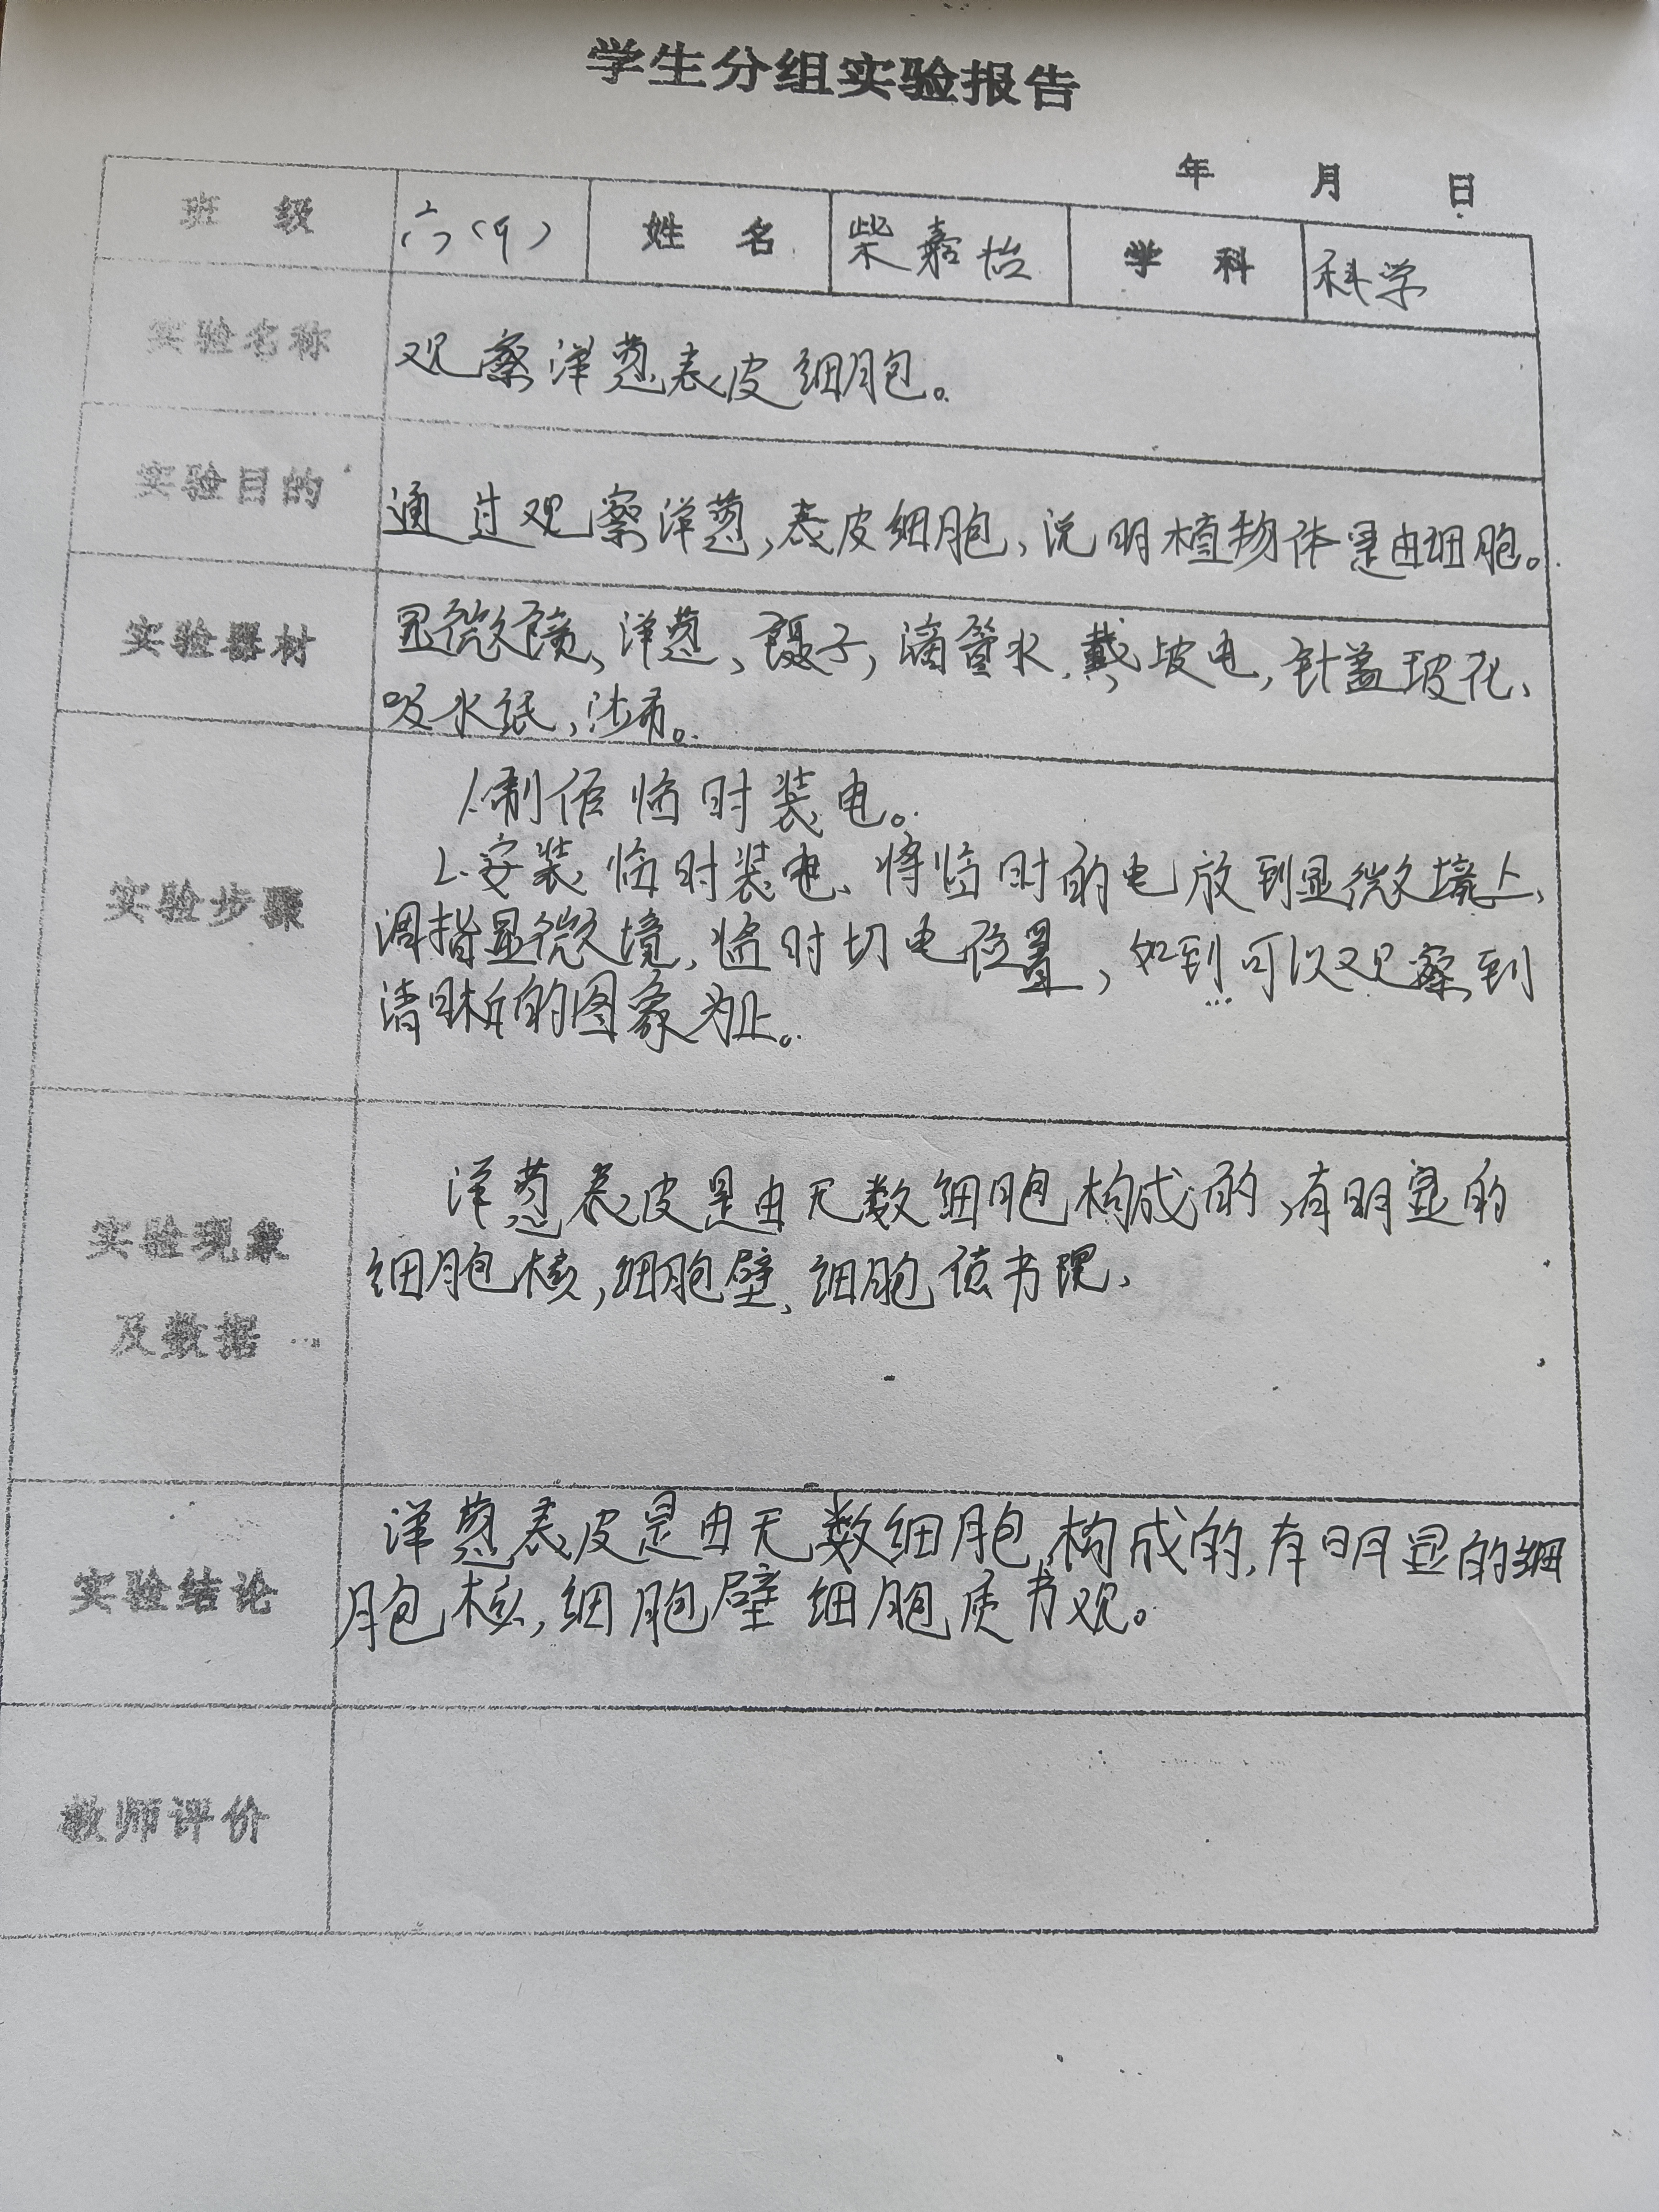 学生分组实验报告
年 月 日
班 级 六(9) 姓 名 柴嘉怡 学 科 科学
实验名称 观察洋葱表皮细胞。
实验目的 通过观察洋葱,表皮细胞,说明植物体是由细胞。
实验器材 显微镜、洋葱、镊子,滴管水、戴坡电,针盖玻花、
吸水纸,沙布。
实验步骤 1.制作临时装电。
2.安装临时装电、将临时的电放到显微境上、
调指显微境,临时切电位置,如到可以观察到
清晰的图象为止。
实验现象
及数据
洋葱表皮是由无数细胞构成的,有明显的
细胞核,细胞壁、细胞
实验结论 洋葱表皮是由无数细胞构成的,有明显的细
胞核,细胞壁细胞质书观。
教师评价